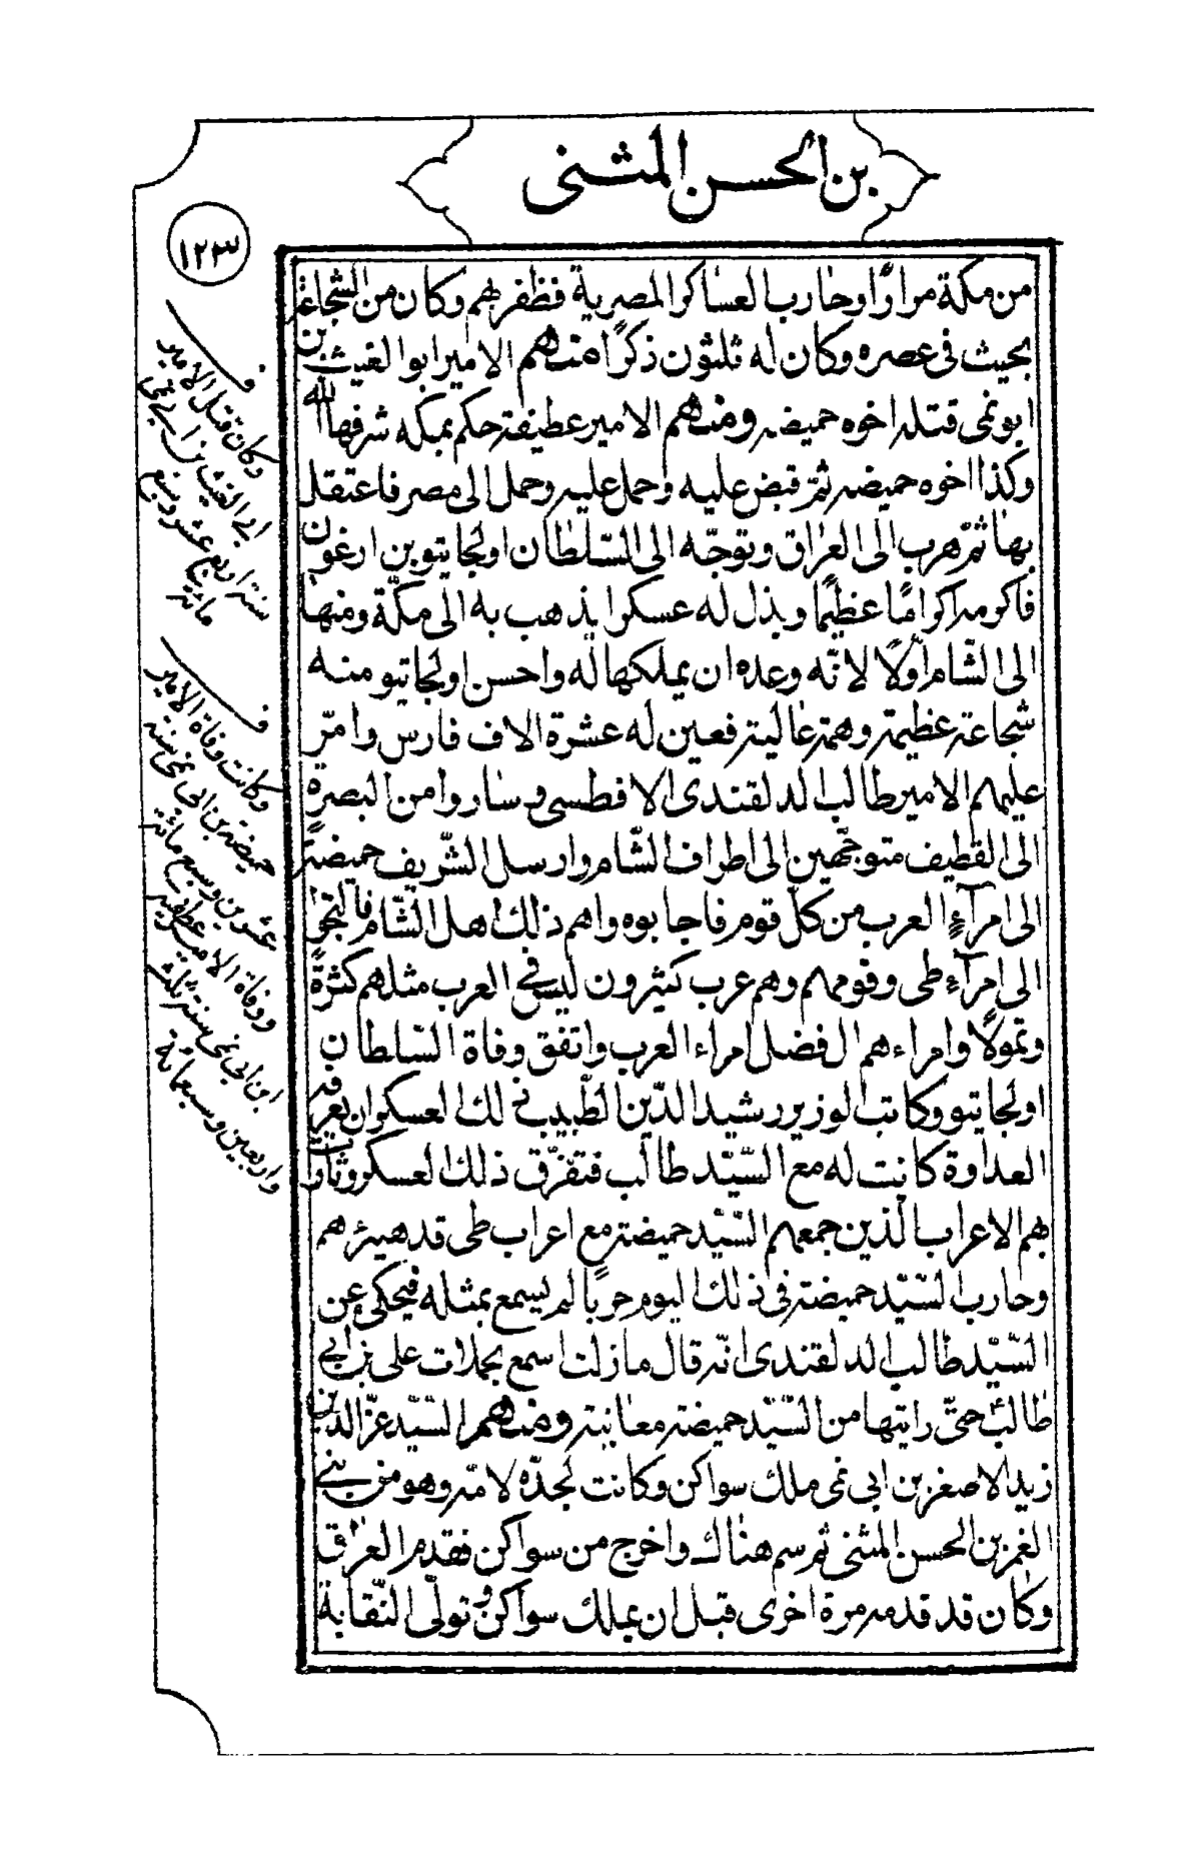 بن الحسن المثنى
١٢٣
من مكة مرارًا وحارب العساكر المصرية فظفر بهم وكان من الشجاعة
بحيث فى عصره وكان له ثلثون ذكرًا منهم الامير ابو الغيث بن
ابو نمى قتله اخوه حميضه ومنهم الامير عطيفة حكم بمكه شرفها الله
وكذا اخوه حميضه ثمّ قبض عليه وحمل عليه وحمل الى مصر فاعتقل
بها ثمّ هرب الى العراق وتوجّه الى السّلطان اولجايتو بن ارغون
فاكرمه اكرامًا عظيمًا وبذل له عسكرا يذهب به الى مكّة ومنها
الى الشّام اوّلًا لانّه وعده ان يملكها له واحسن اولجايتو منه
شجاعة عظيمة وهمة عالية فعين له عشرة الاف فارس وامّر
عليهم الامير طالب الدلقندى الافطسى وساروا من البصرة
الى القطيف متوجّهين الى اطراف الشّام وارسل الشّريف حميضة
الى امرآء العرب من كلّ قوم فاجابوه واهم ذلك اهل الشّام فالتجوا
الى امرآء طى وقومهم وهم عرب كثيرون ليس فى العرب مثلهم كثرةً
وتمولًا وامراءهم ال فضل امراء العرب واتفق وفاة السّلطان
اولجايتو وكاتب الوزير رشيد الدّين الطّبيب ذلك العسكر ان يعرقه
العداوة كانت له مع السّيّد طالب فتفرّق ذلك العسكر وثاوب
بهم الاعراب الّذين جمعهم السّيّد حميضة مع اعراب طى قد هيئهم
وحارب السّيّد حميضة فى ذلك اليوم حربًا لم يسمع بمثله فيحكى عن
السّيّد طالب الدلقندى انّه قال ما زلت اسمع بحملات على بن ابى
طالب حتّى رايتها من السّيّد حميضة معاينة ومنهم السّيّد عزّ الدين
زيد الاصغر بن ابى نمى ملك سواكن وكانت لجدّه لامّه وهو من بنى
الغمر بن الحسن المثنى ثم سم هناك واخرج من سواكن فقدم العراق
وكان قد قدمه مرة اخرى قبل ان يملك سواكن وتولّى النّقابة
ف
وكان قتل الامير
ابى الغيث بن ابى نمى
سنة اربع عشر وسبع
مائة
ف
وكانت وفاة الامير
حميضة بن ابى نمى سنة
عشرين وسبع مائة
ووفاة الامير عطيفة
ابن ابى نمى سنة ثلث
واربعين وسبعمائة